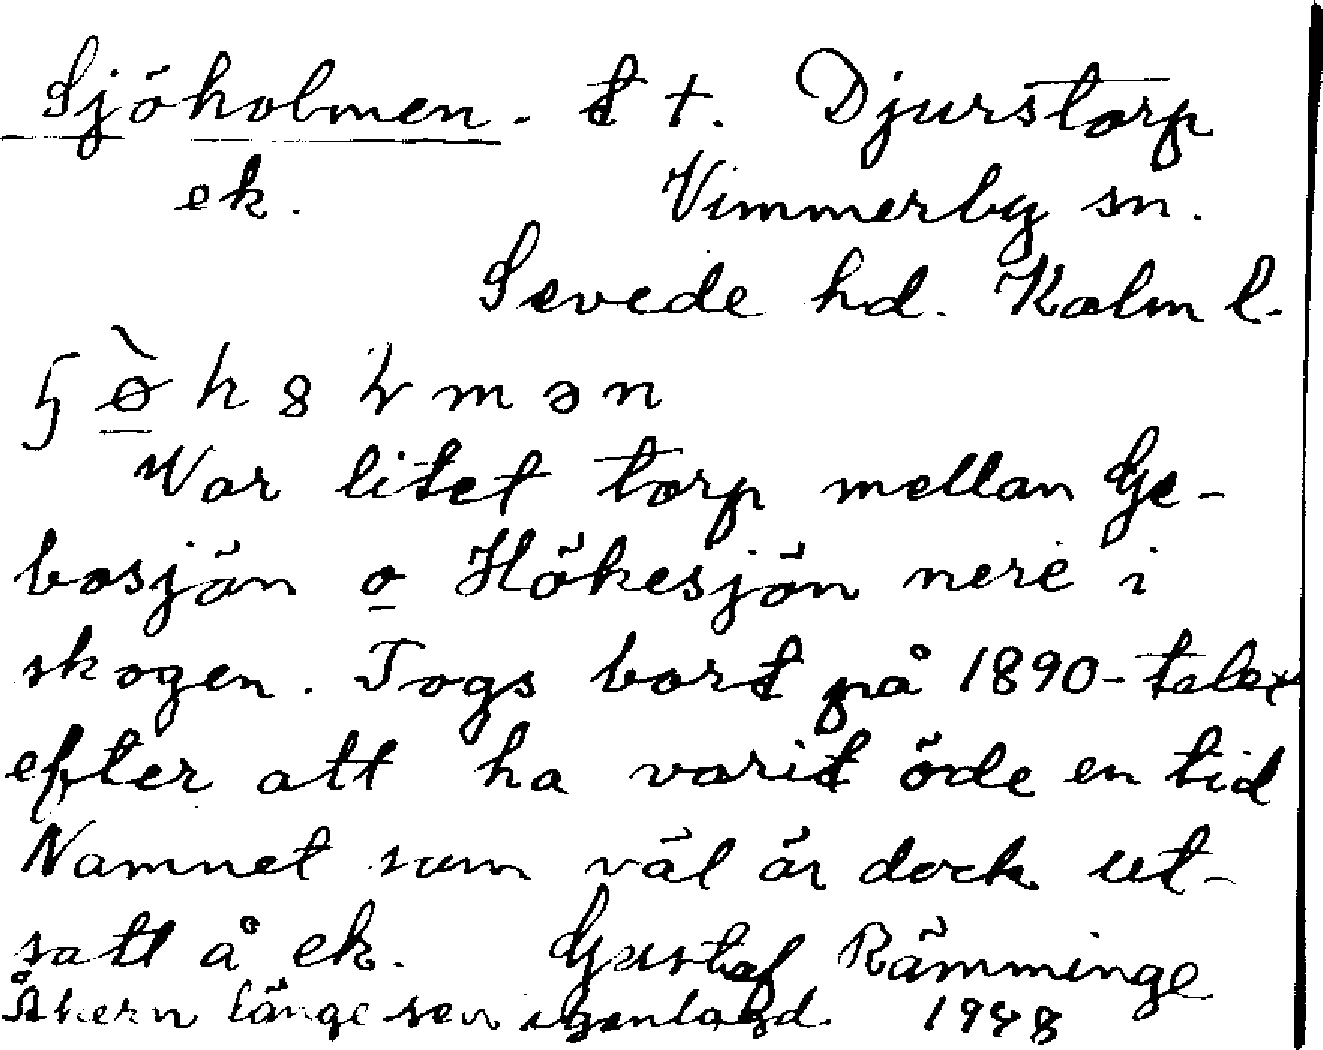 Sjöholmen. t t. Djurstorp
ek. Vimmerby sn.
Sevede hd. Kalm l.
Var litet torp mellan Ge-
bosjön o Hökesjön nere i
skogen. Togs bort på 1890-talet
efter att ha varit öde en tid
Namnet som väl är dock ut-
satt å ek. Gustaf Rämminge
Åkern länge sen igenlagd. 1948